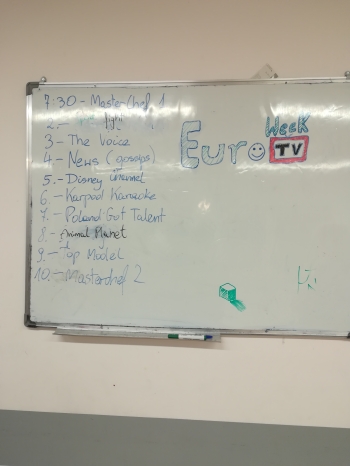 7:30 - MasterChef 1
2.- light
3 - The Voice
4 - News (gossips)
5.- Disney channel
6 - Karpool Karaoke
7.- Poland Got Talent
8.- Animal Planet
9.- Top Model
10.- Masterchef 2
Euro Week
TV